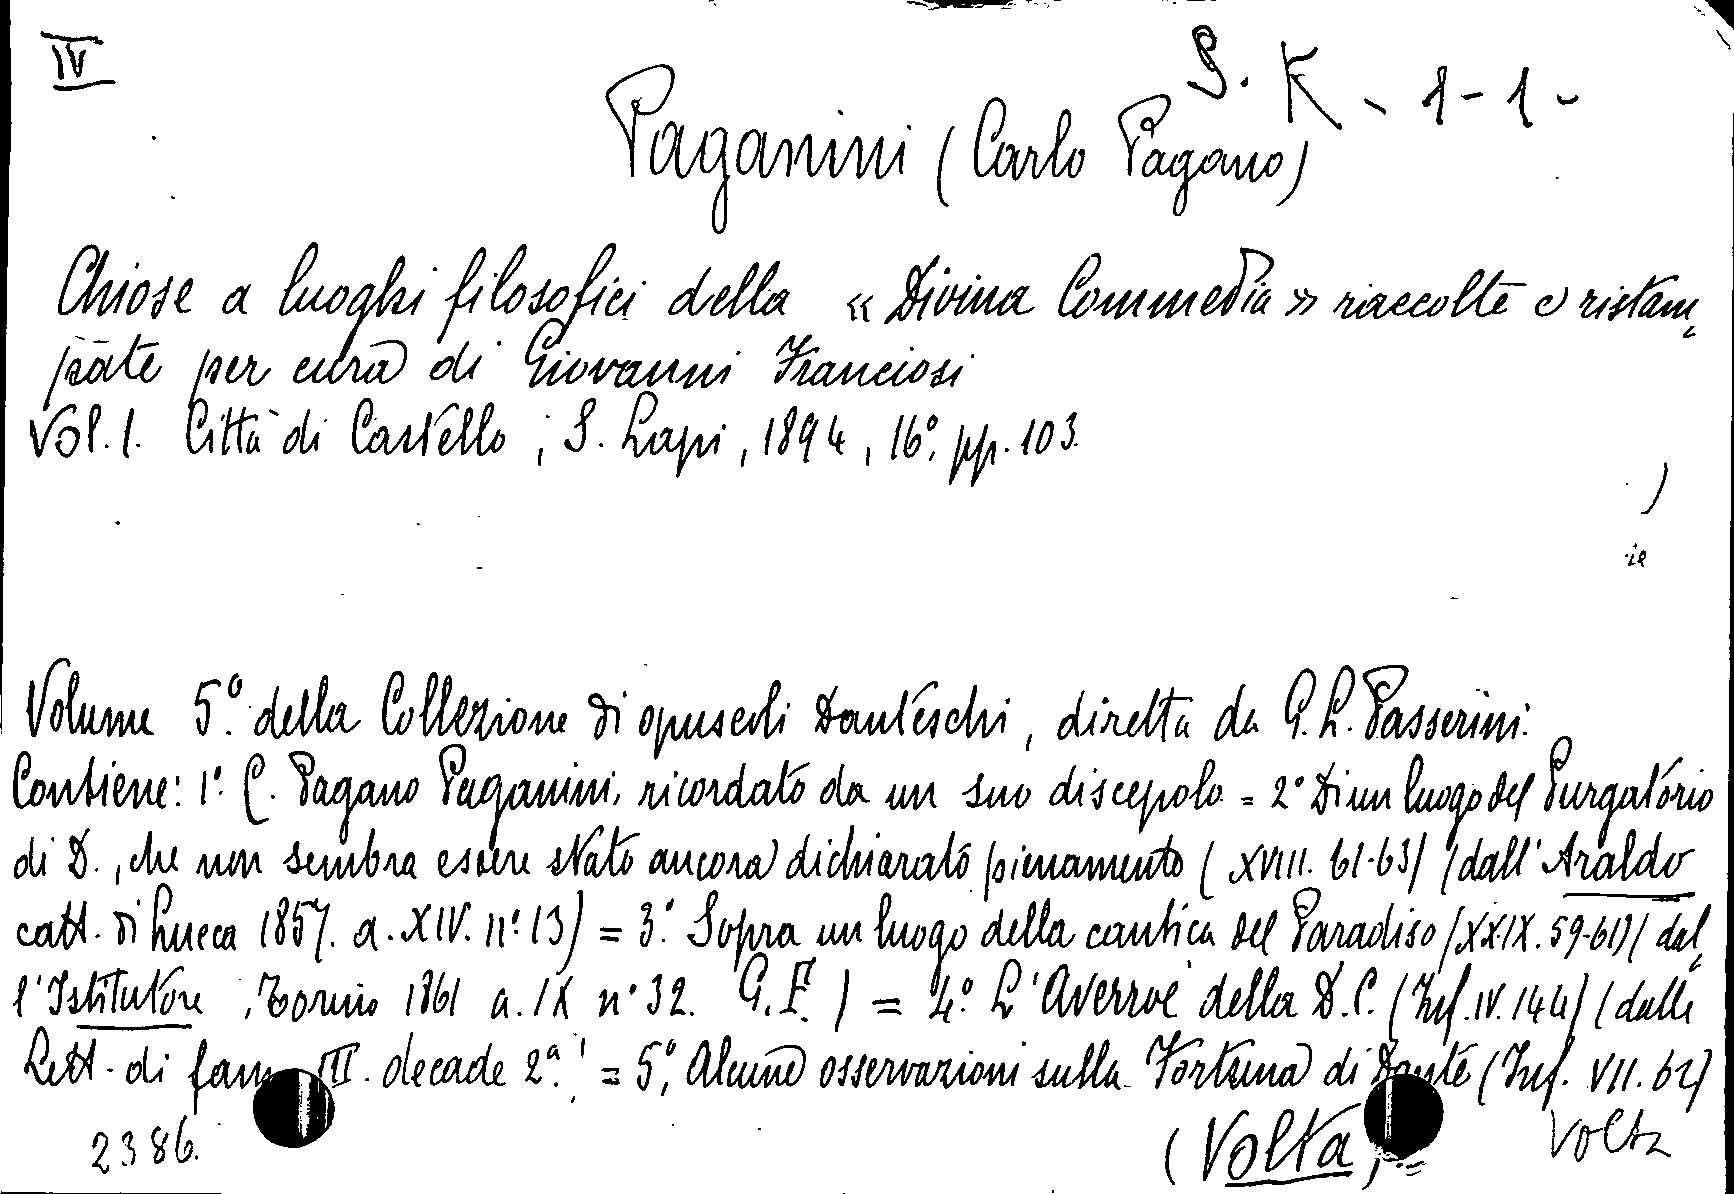 IV
S. K - 1-1-
Paganini (Carlo Pagano)
Chiose a luoghi filosofici della « Divina Commedia » raccolte e ristam,
pate per cura di Giovanni Franciosi
Vol. I. Città di Castello, S. Lapi, 1894, 16°, pp. 103.
)
ie
Volume 5° della Collezione di opuscoli Danteschi, diretta da G. L. Passerini.
Contiene: 1° C. Pagano Paganini, ricordato da un suo discepolo = 2° Di un luogo del Purgatorio
di D., che non sembra essere stato ancora dichiarato pienamente (XVIII. 61-63) (dall'Araldo
catt. di Lucca 1857. a. XIV. n° 13) = 3° Sopra un luogo della cantica del Paradiso (XXIX. 59-61) (dal,
l'Istitutore, Torino 1861 a. IX n° 32. G. F.) = 4° L'Averroè della D. C. (Inf. IV. 144) (dalle
Lett. di fam III. decade 2ª.) = 5°, Alcune osservazioni sulla Fortuna di Dante (Inf. VII. 62)
2386. (Volta) Volta